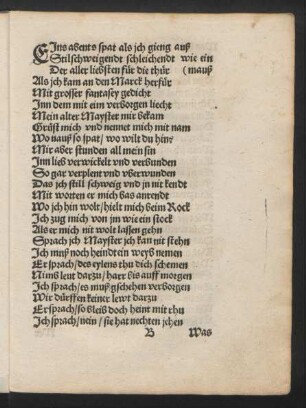 EIns abents spat als jch gieng auß
Stilschweigendt schleichendt wie ein
Der aller liebsten für die thür (mauß
Als jch kam an den Marck herfür
Mit grosser fantasey gedicht
Inn dem mit eim verborgen liecht
Mein alter Mayster mir bekam
Grüst mich vnd nennet mich mit nam
Wo nauß so spat / wo wilt du hin:
Mir aber stunden all mein sin
Inn lieb verwickelt vnd verbunden
So gar verplent vnd vberwunden
Das jch still schweig vnd jn nit kendt
Mit worten er mich bas anrendt
Wo jch hin wolt / hielt mich beim Rock
Ich zug mich von jm wie ein stock
Als er mich nit wolt lassen gehn
Sprach jch Mayster jch kan nit stehn
Ich muß noch heindt ein weyb nemen
Er sprach / des eylens thu dich schemen
Nims leut darzu / harr bis auff morgen
Ich sprach / es muß gschehen verborgen
Wir dürffen keiner lewt darzu
Er sprach / so bleib doch heint mit rhu
Ich sprach / nein / sie hat nechten jehen
B Was